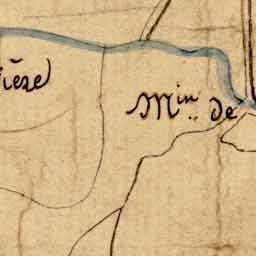 ière
M.in de